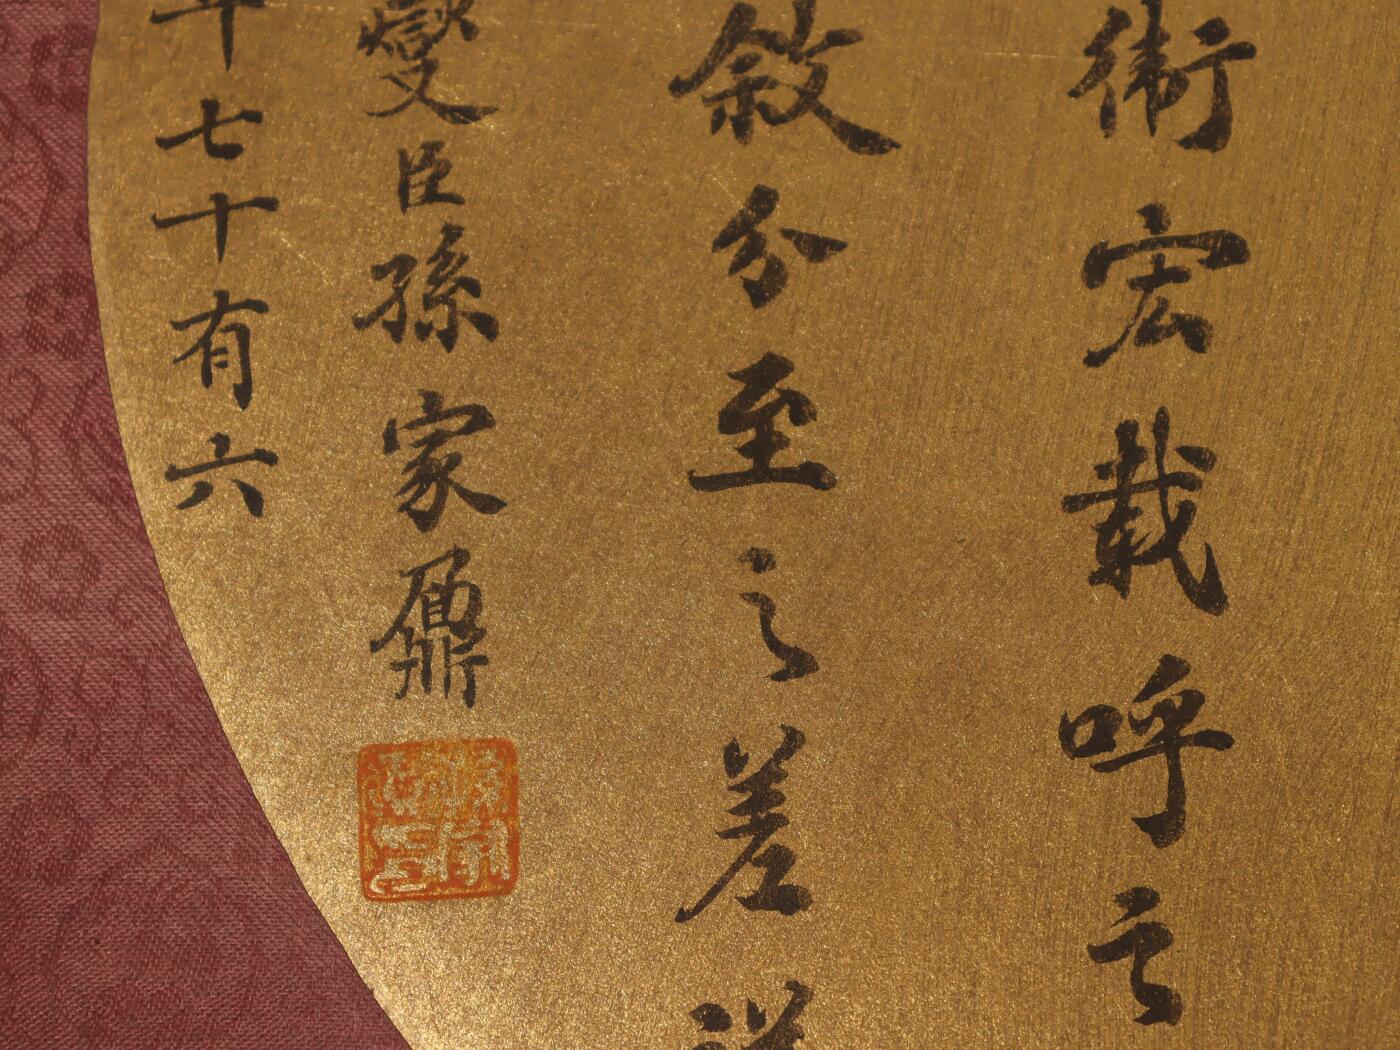 衛宏載呼之
敘分至之差詳
燮臣孫家鼐
年七十有六